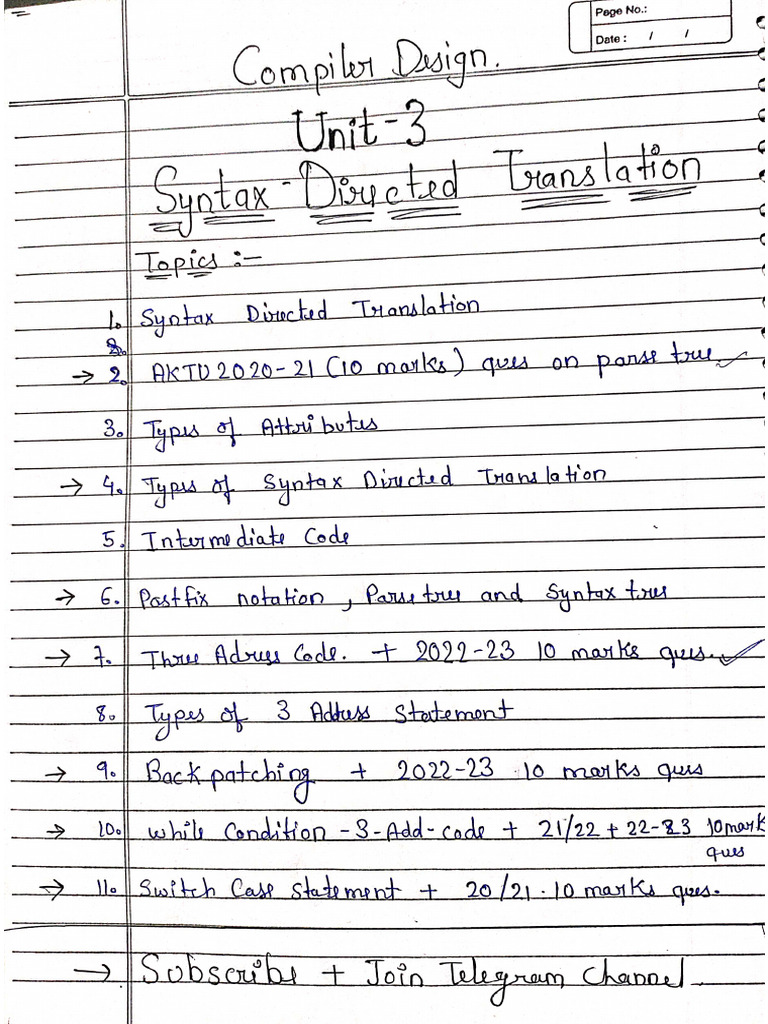 Page No.:
Date : / /
Compiler Design.
Unit-3
Syntax-Directed Translation
Topics :-
1. Syntax Directed Translation
→ 2. AKTU 2020-21 (10 marks) ques on parse tree ✓
3. Types of Attributes
→ 4. Types of Syntax Directed Translation
5. Intermediate Code
→ 6. Postfix notation, Parse tree and Syntax tree
→ 7. Three Adress Code. + 2022-23 10 marks ques. ✓
8. Types of 3 Address Statement
→ 9. Back patching + 2022-23 10 marks ques
→ 10. While Condition -3-Add-code + 21/22 + 22-23 10 mark
ques
→ 11. Switch Case Statement + 20/21 . 10 marks ques.
→ Subscribe + Join Telegram Channel.